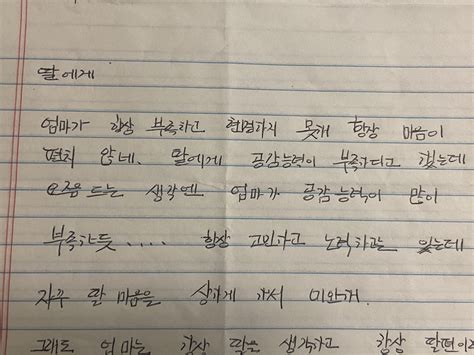 딸에게
엄마가 항상 부족하고 현명하지 못해 항상 마음이
편치 않네. 딸에게 공감능력이 부족하다고 했는데
요즘 드는 생각엔 엄마가 공감능력이 많이
부족한듯..... 항상 고민하고 노력하고는 있는데
자꾸 딸 마음을 상하게 해서 미안해.
그래도 엄마는 항상 딸을 생각하고 항상 딸편이